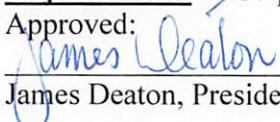 Approved:
James Deaton
James Deaton, Preside